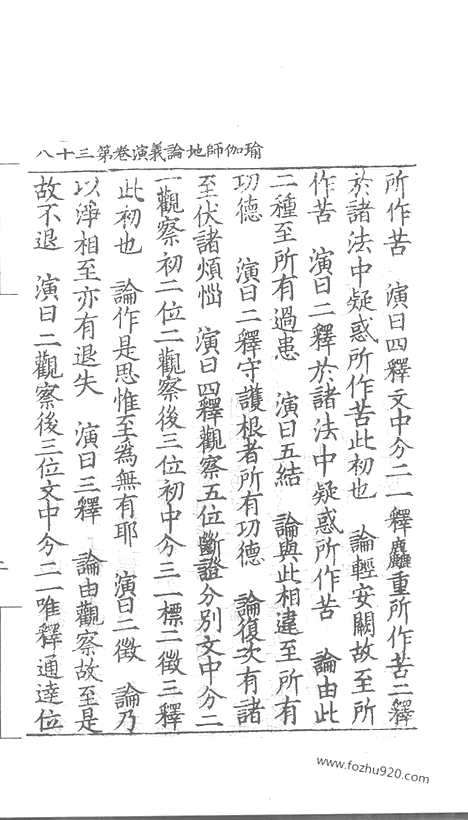 瑜伽師地論義演卷第三十八
所作苦　演曰四釋文中分二一釋麤重所作苦二釋
於諸法中疑惑所作苦此初也　論輕安闕故至所
作苦　演曰二釋於諸法中疑惑所作苦　論由此
二種至所有過患　演曰五結　論與此相違至所有
功德　演曰二釋守護根者所有功德　論復次有諸
至伏諸煩惱　演曰四釋觀察五位斷證分別文中分二
一觀察初二位二觀察後三位初中分三一標二徵三釋
此初也　論作是思惟至為無有耶　演曰二徵　論乃
以淨相至亦有退失　演曰三釋　論由觀察故至是
故不退　演曰二觀察後三位文中分二一唯釋通達位
www.fozhu920.com